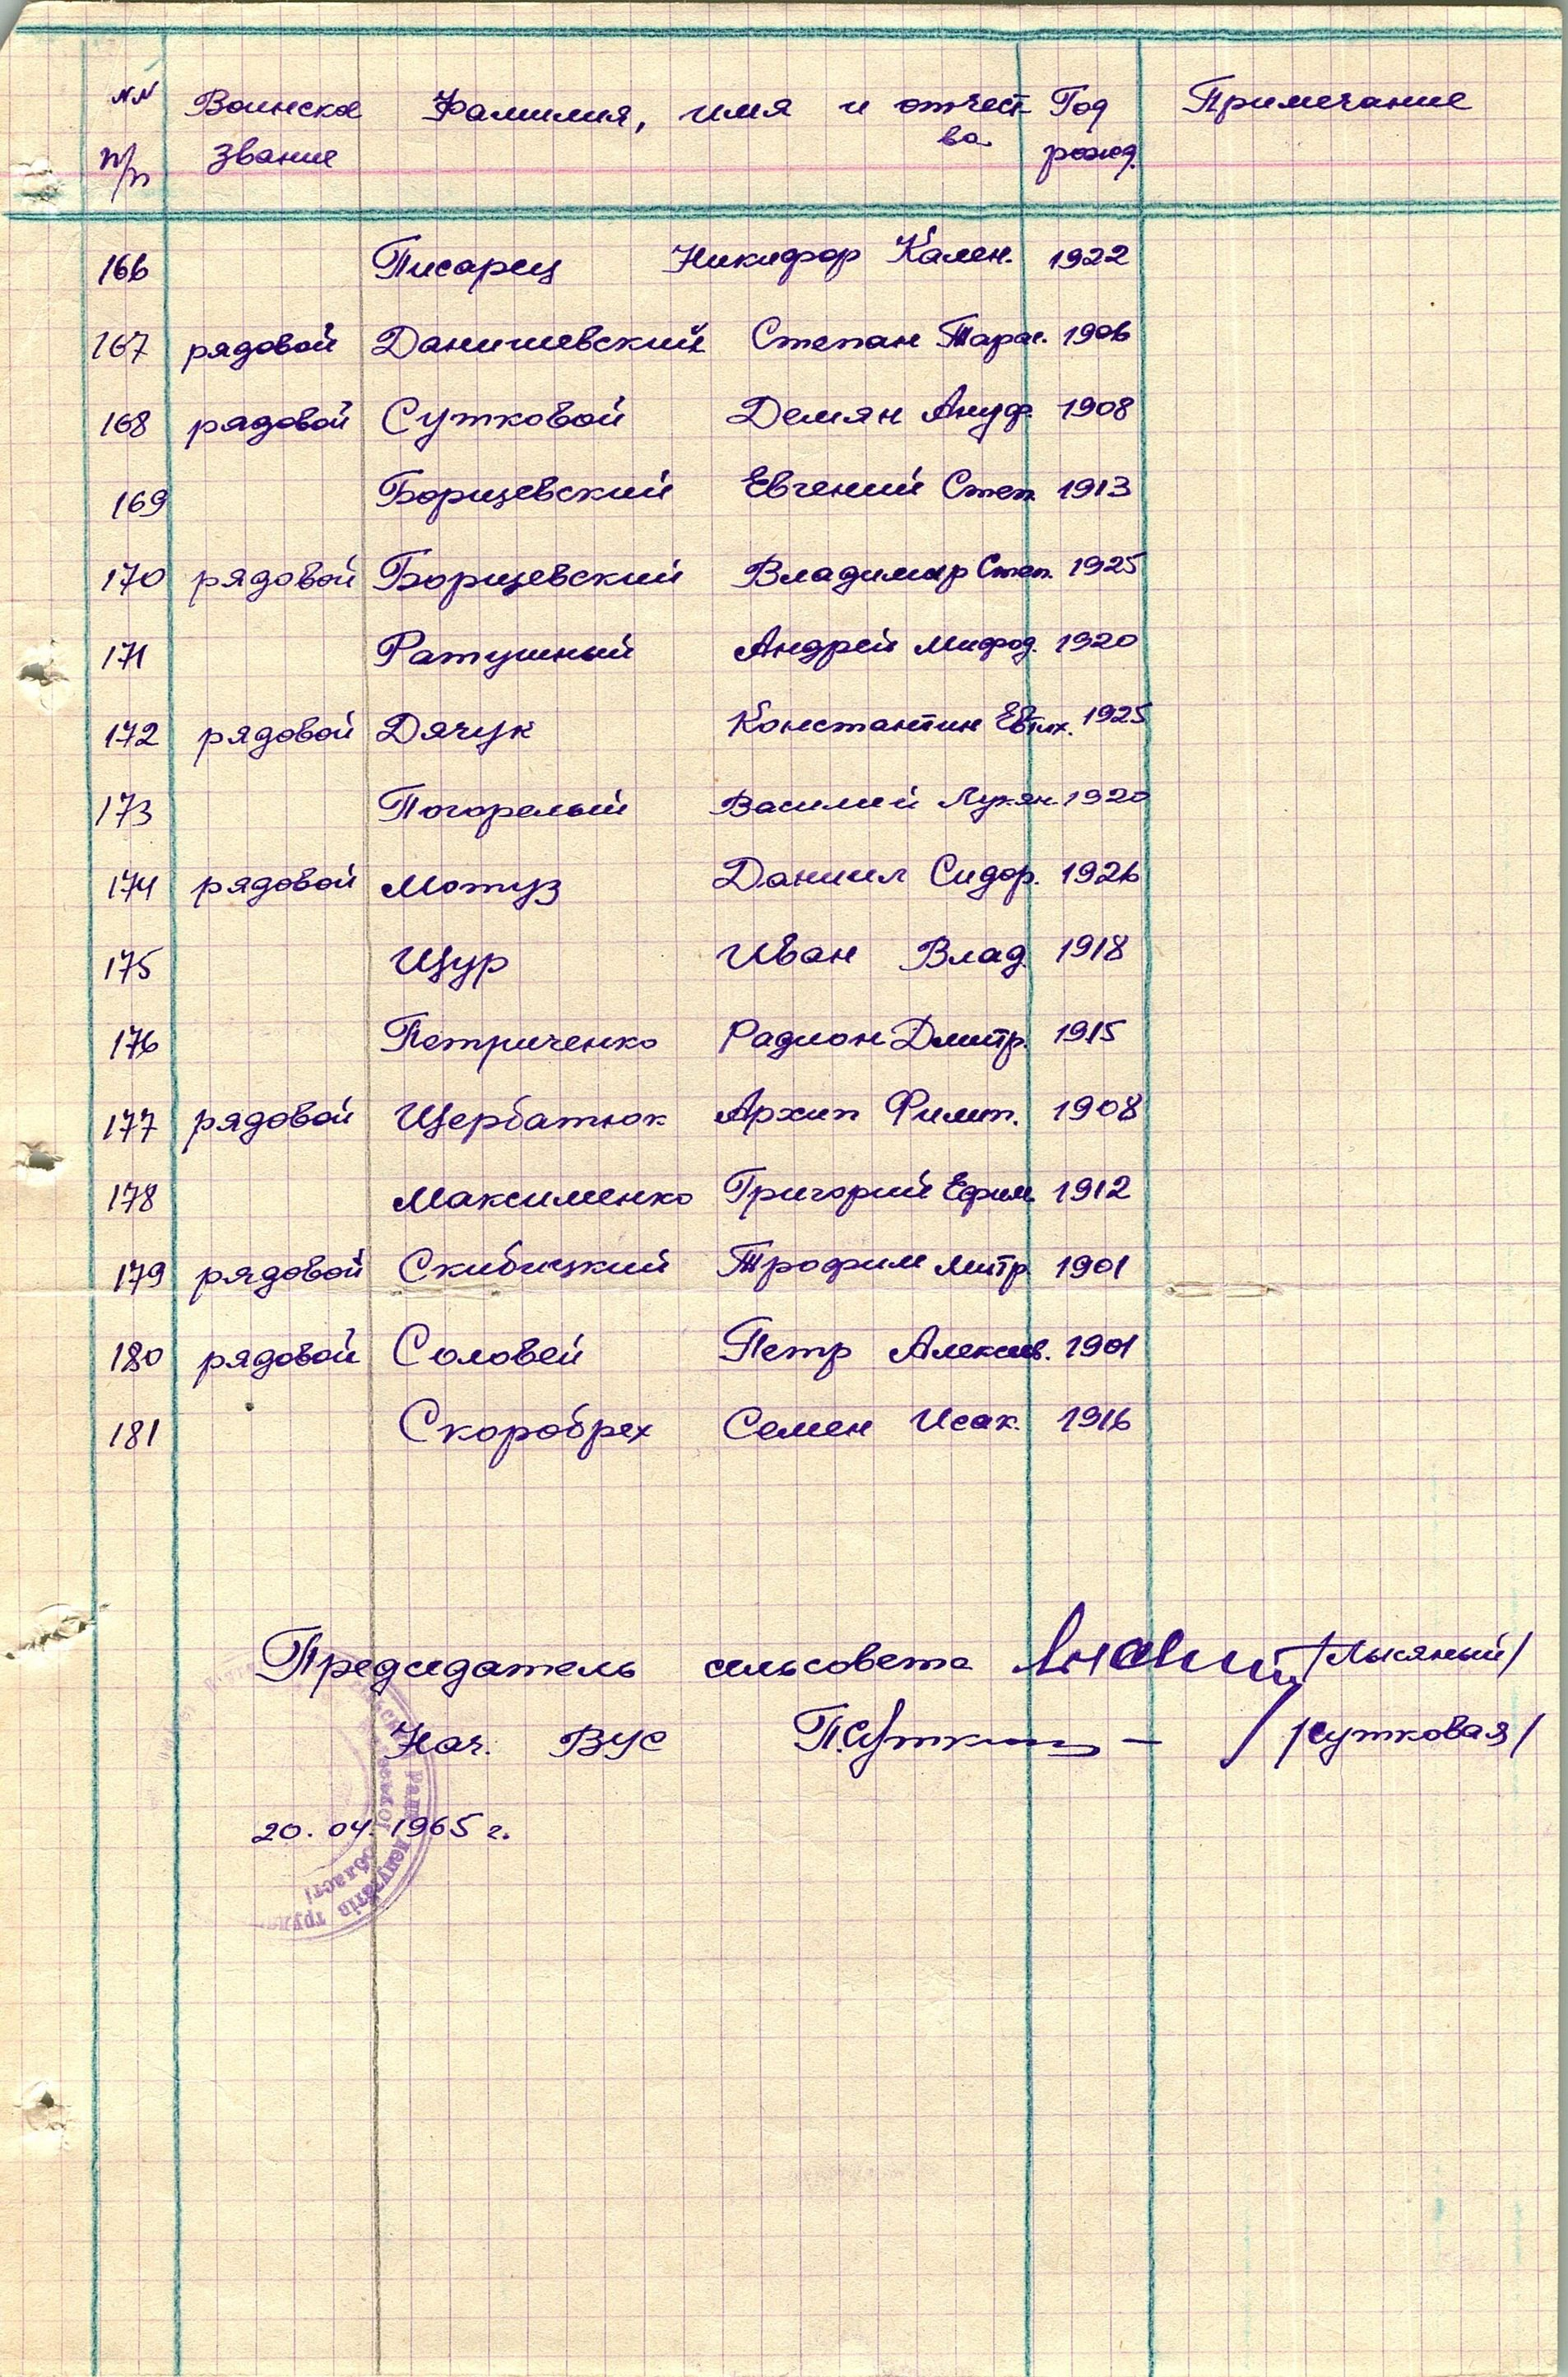 NN Воинское Фамилия, имя и отчест Год Примечание
п/п звание ва рожд.
166 Писарец Никифор Кален. 1922
167 рядовой Данишевский Степан Тарас. 1906
168 рядовой Сутковой Демян Ануф. 1908
169 Борщевский Евгений Степ. 1913
170 рядовой Борщевский Владимир Степ. 1925
171 Ратушный Андрей Мифод. 1920
172 рядовой Дячук Константин Евтих. 1925
173 Погорелый Василий Лукян. 1920
174 рядовой Мотуз Даниил Сидор. 1926
175 Щур Иван Влад. 1918
176 Петриченко Радион Дмитр. 1915
177 рядовой Щербатюк Архип Филип. 1908
178 Максименко Григорий Ефим. 1912
179 рядовой Скибицкий Трофим Митр. 1901
180 рядовой Соловей Петр Алексеев. 1901
181 Скоробрех Семен Исак. 1916
Председатель сельсовета /Лысяный/
Нач. ВУС /Сутковая/
20.04.1965 г.
Ради депутатів
області